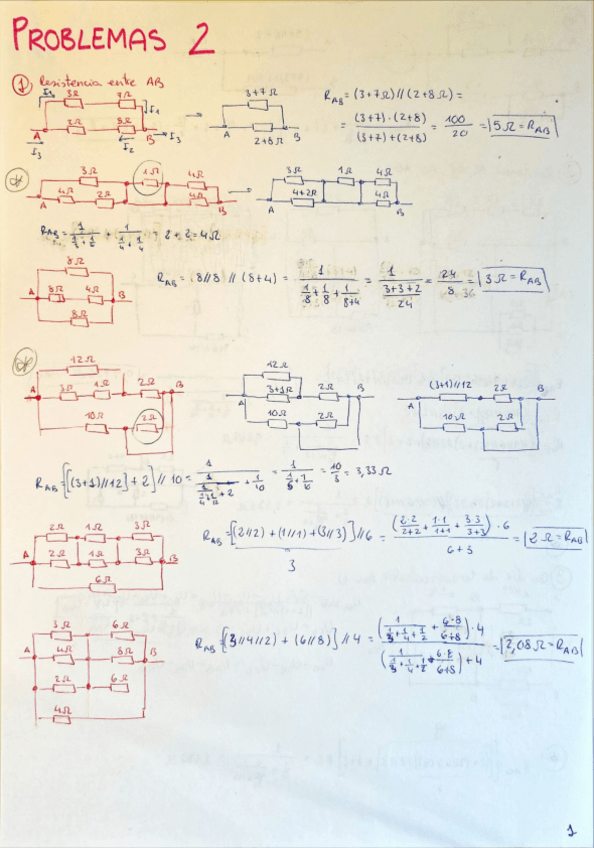 PROBLEMAS 2
① Resistencia entre AB
I₁ 3Ω 7Ω I₁
A 2Ω 8Ω B I₃
I₃ I₂
3+7Ω
A B
2+8Ω
R_AB = (3+7Ω)//(2+8Ω) =
= (3+7)·(2+8) / (3+7)+(2+8) = 100/20 = 5Ω = R_AB
3Ω 1Ω 4Ω
A 4Ω 2Ω 4Ω B
3Ω 1Ω 4Ω
A 4+2Ω 4Ω B
= 2+2 = 4Ω
8Ω
A 8Ω 4Ω B
8Ω
R_AB = 8//8 // (8+4) = 1 / (1/8 + 1/8 + 1/(8+4)) = 1 / ((3+3+2)/24) = 24/8 = 3Ω = R_AB
12Ω
A 3Ω 1Ω 2Ω B
10Ω 2Ω
12Ω
A 3+1Ω 2Ω B
10Ω 2Ω
(3+1)//12 2Ω
A B
10Ω 2Ω
R_AB = [[(3+1)//12] + 2] // 10 = = 10/3 = 3,33Ω
2Ω 1Ω 3Ω
A 2Ω 1Ω 3Ω B
6Ω
R_AB = [(2//2) + (1//1) + (3//3)] //6 = (2·2/2+2 + 1·1/1+1 + 3·3/3+3) · 6 / 6+3 = 2Ω = R_AB
3
3Ω 6Ω
A 4Ω 8Ω B
2Ω 6Ω
4Ω
R_AB = [(3//4//2) + (6//8)] // 4 = (1/(1/3+1/4+1/2) + 6·8/6+8) · 4 / (1/(1/3+1/4+1/2) + 6·8/6+8) + 4 = 2,08Ω = R_AB
1